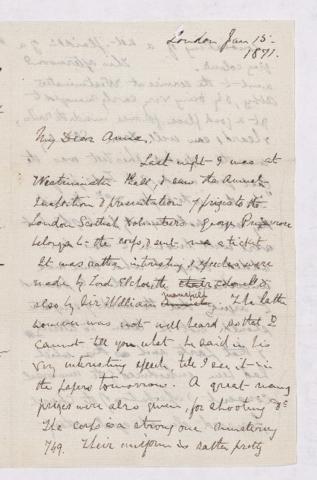 London Jan 15-
1871.
My Dear Annie,
Last night I was at
Westminster Hall, & saw the Annual
Inspection & presentation of prizes to the
London Scottish Volunteers. George Primrose
belongs to the corps, & sent me a ticket
It was rather interesting, & speeches were
made by Lord Elcho, the
also by Sir William Mansfield. The latter
however was not well heard, so that I
cannot tell you what he said in his
very interesting speech till I see it in
the papers tomorrow. A great many
prizes were also given, for shooting &c
The corps is a strong one numbering
749. Their uniform is rather pretty